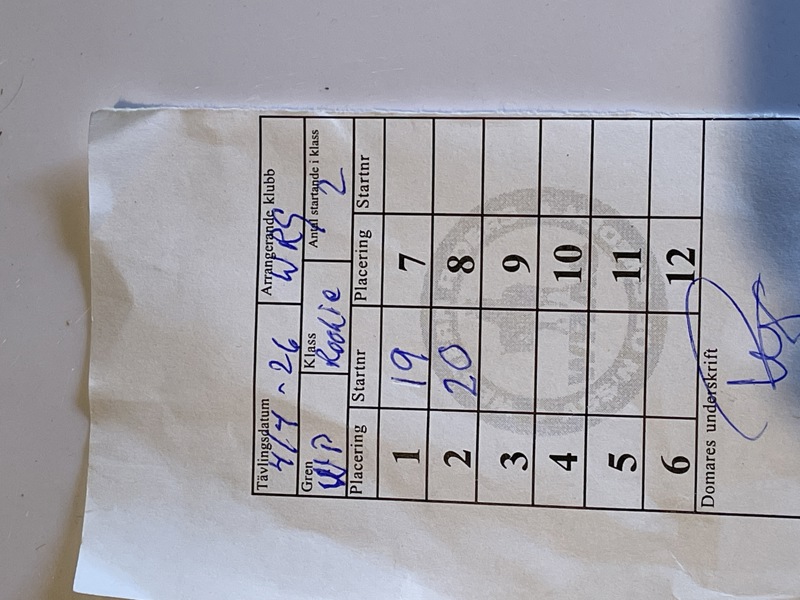 Tävlingsdatum Arrangerande klubb
4/4-26 WRS
Gren Klass Antal startande i klass
WP Rookie 2
Placering Startnr Placering Startnr
1 19 7
2 20 8
3 9
4 10
5 11
6 12
Domares underskrift